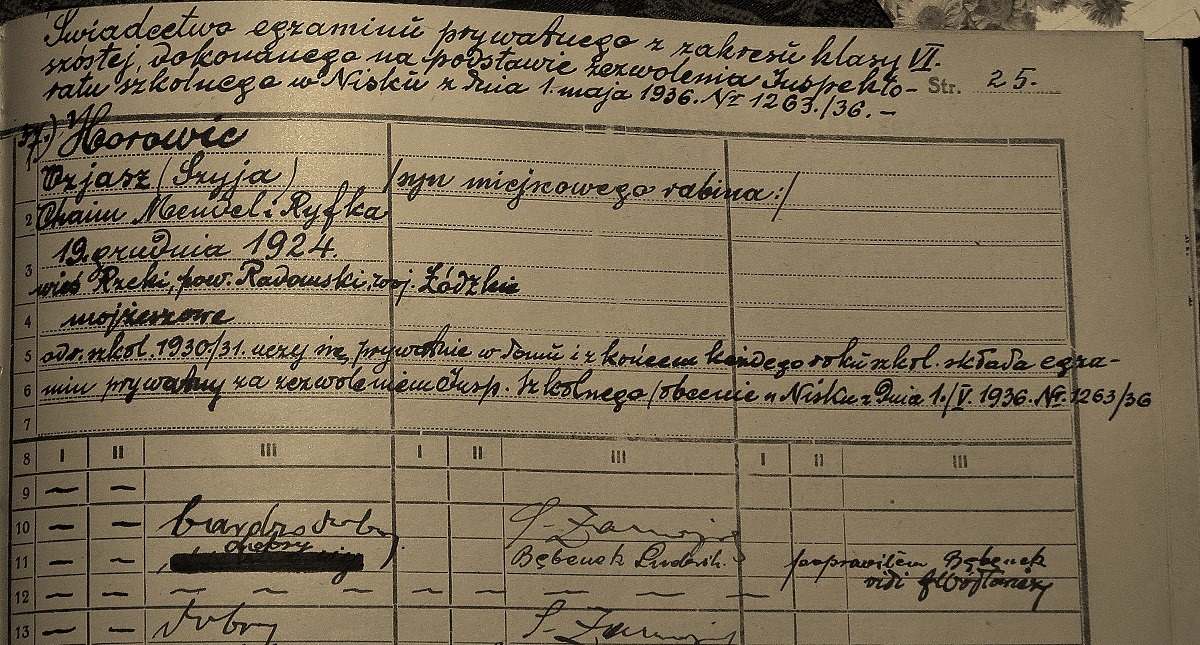 Świadectwo egzaminu prywatnego z zakresu klasy VI.
szóstej, dokonanego na podstawie zezwolenia Inspekto-
ratu szkolnego w Nisku z dnia 1. maja 1936. Nr 1263./36. –
Str. 25.
Horowic
1 Ozjasz (Szyja) /syn miejscowego rabina:/
2 Chaim Mendel i Ryfka
19. grudnia 1924.
3 wieś Rzeki, pow. Radomski, woj. Łódzkie
4 mojżeszowe
5 odr. szkol. 1930/31. uczy się prywatnie w domu i z końcem każdego roku szkol. składa egza-
6 min prywatny za zezwoleniem Insp. Szkolnego /obecnie w Nisku z dnia 1./V. 1936. Nr. 1263/36
7
8 I II III I II III I II III
9 — —
10 — — bardzo dobry
11 — — dobry Bębenek Ludwik. poprawiłem Bębenek
vidi
12 — — — — — — — — —
13 — — dobry